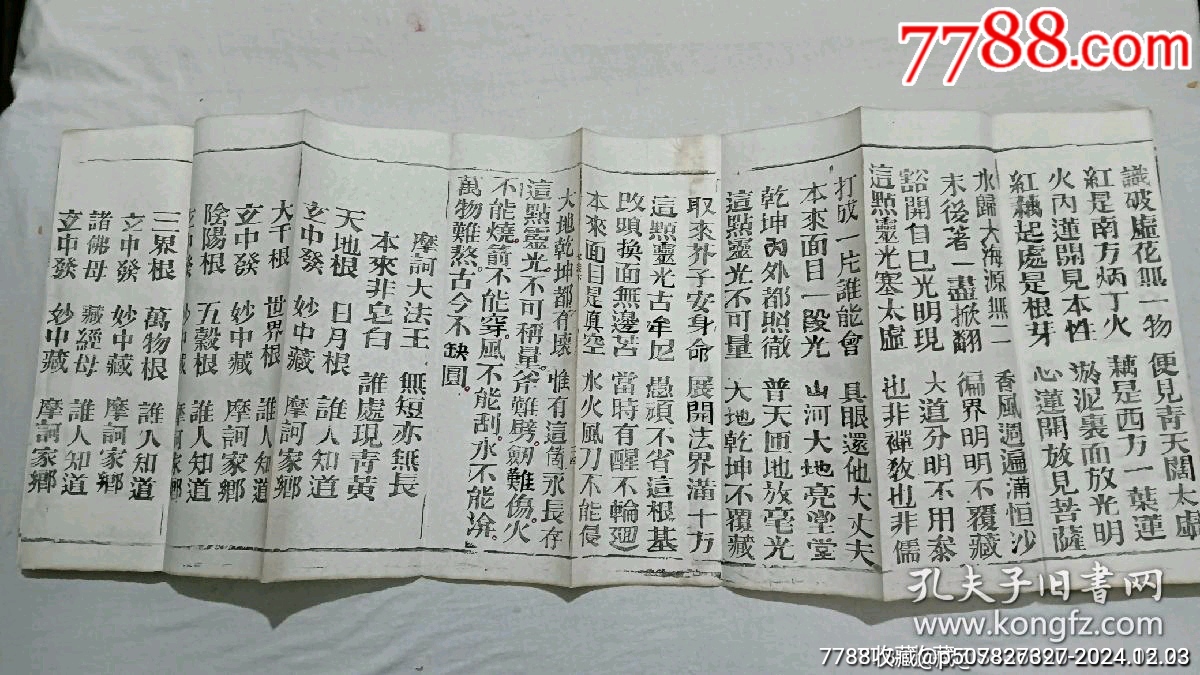 識破虛花無一物 便見青天闊太虛
紅是南方炳丁火 藕是西方一葉蓮
火內蓮開見本性 淤泥裏面放光明
紅藕起處是根芽 心蓮開放見菩薩
水歸大海源無二 香風週遍滿恒沙
末後著一盡掀翻 徧界明明不覆藏
豁開自巳光明現 大道分明不用叅
這點靈光塞太虛 也非禪教也非儒
打成一片誰能會 具眼還他大丈夫
本來面目一段光 山河大地亮堂堂
乾坤內外都照徹 普天匝地放毫光
這點靈光不可量 大地乾坤不覆藏
取來芥子安身命 展開法界滿十方
這點靈光古牟尼 愚頑不省這根基
改頭換面無邊苦 當時有醒不輪廻
本來面目是真空 水火風刀不能侵
大地乾坤都有壞 惟有這箇永長存
這點靈光不可稱量。斧難劈。劒難傷。火
不能燒。箭不能穿。風不能刮。水不能渰。
萬物難熬。古今不缺圓。
摩訶大法王 無短亦無長
本來非皂白 誰處現青黃
天地根 日月根 誰人知道
玄中發 妙中藏 摩訶家鄉
大千根 世界根 誰人知道
玄中發 妙中藏 摩訶家鄉
陰陽根 五穀根 誰人知道
玄中發 妙中藏 摩訶家鄉
三界根 萬物根 誰人知道
玄中發 妙中藏 摩訶家鄉
諸佛母 藏經母 誰人知道
玄中發 妙中藏 摩訶家鄉
7788.com
孔夫子旧书网
www.kongfz.com